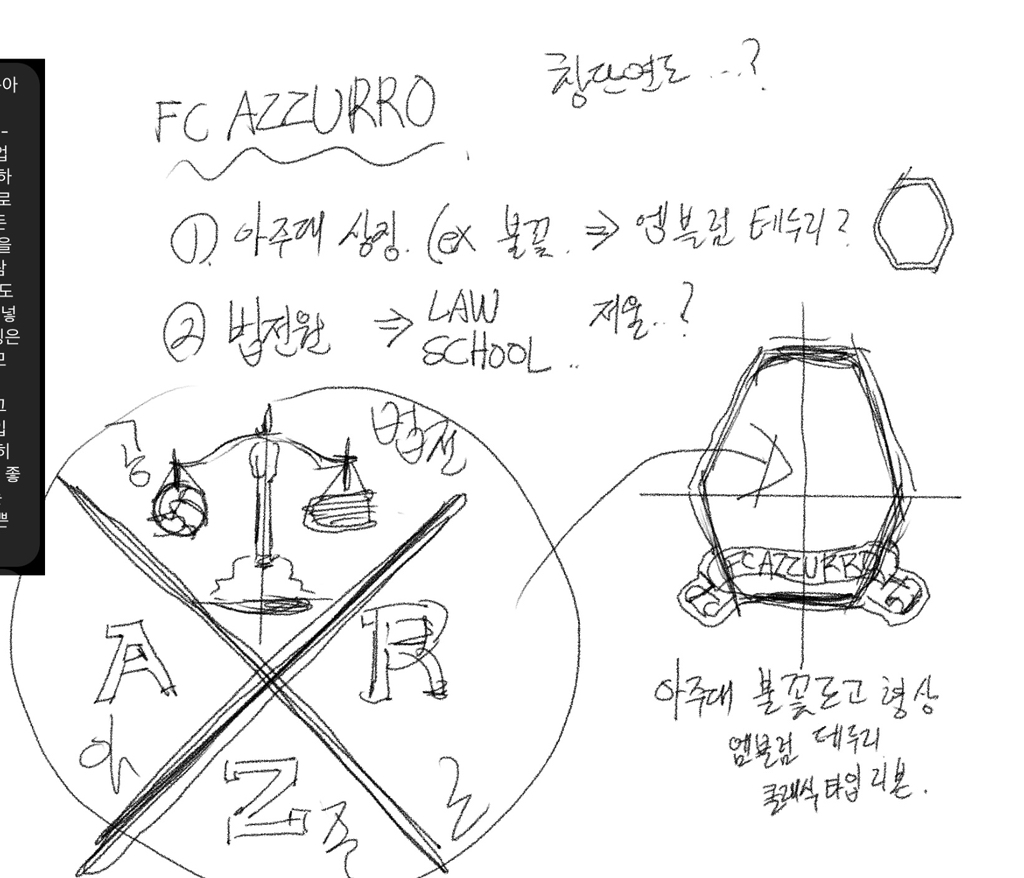 창단연도 ...?
FC AZZURRO
① 아주대 상징. (ex 불꽃. ⇒ 엠블럼 테두리?
② 법전원 ⇒ LAW SCHOOL .. 저울..?
공
법전
A
아
R
로
Z
주
FC AZZURRO
아주대 불꽃로고 형상
엠블럼 테두리
클래식타입 리본.
아
-
업
하
로
든
을
도
넣
은
고
입
히
좋
쁜